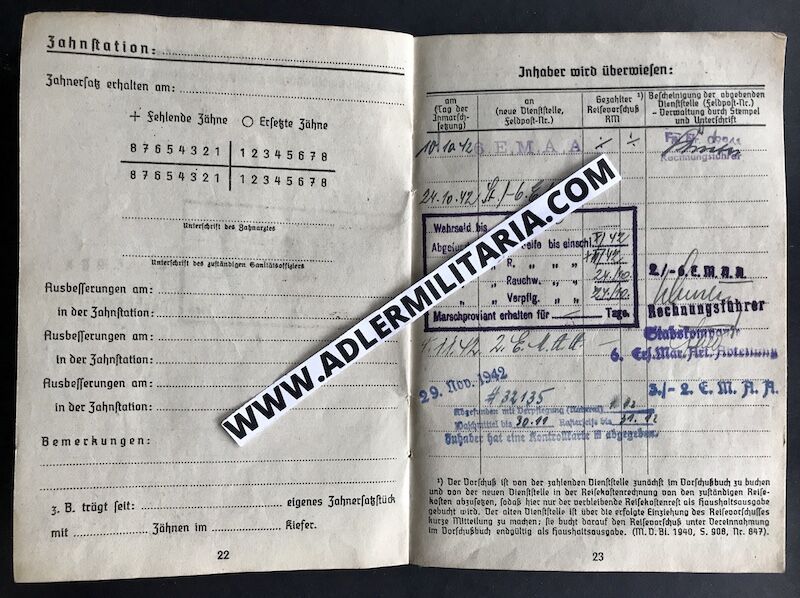 Zahnstation:
Zahnersatz erhalten am:
+ Fehlende Zähne ○ Ersetzte Zähne
8 7 6 5 4 3 2 1 1 2 3 4 5 6 7 8
8 7 6 5 4 3 2 1 1 2 3 4 5 6 7 8
Unterschrift des Zahnarztes
Unterschrift des zuständigen Sanitätsoffiziers
Ausbesserungen am:
in der Zahnstation:
Ausbesserungen am:
in der Zahnstation:
Ausbesserungen am:
in der Zahnstation:
Bemerkungen:
z. B. trägt seit: eigenes Zahnersatzstück
mit Zähnen im Kiefer.
22
WWW.ADLERMILITARIA.COM
Inhaber wird überwiesen:
am
(Tag der
Inmarsch-
setzung)
an
(neue Dienststelle,
Feldpost-Nr.)
Gezahlter ¹)
Reisevorschuß
RM
Bescheinigung der abgebenden
Dienststelle (Feldpost-Nr.)
- Verwaltung durch Stempel
und Unterschrift
10.10.42 6 E.M.A.A
Rechnungsführer
24.10.42
Wehrsold bis
bis einschl.
" R. " "
" Rauchw. " "
" Verpfleg. " "
Marschproviant erhalten für Tage.
2./-6.E.M.A.A.
Rechnungsführer
Stabskompanie
6. Ers. Mar. Art. Abteilung
11.42 2. E.M.A.A
29. Nov. 1942
#32135
3./- 2. E. M. A. A.
Abgefunden mit Verpflegung
Waschmittel bis 30.11 bis 31.12
Inhaber hat eine Kontrollkarte abgegeben.
¹) Der Vorschuß ist von der zahlenden Dienststelle zunächst im Vorschußbuch zu buchen
und von der neuen Dienststelle in der Reisekostenrechnung von den zuständigen Reise-
kosten abzusetzen, sodaß hier nur der verbleibende Reisekosten als Haushaltsausgabe
gebucht wird. Der alten Dienststelle ist über die erfolgte Einziehung des Reisevorschusses
kurze Mitteilung zu machen; sie bucht darauf den Reisevorschuß unter Vereinnahmung
im Vorschußbuch endgültig als Haushaltsausgabe. (M. D. Bl. 1940, S. 908, Nr. 847).
23